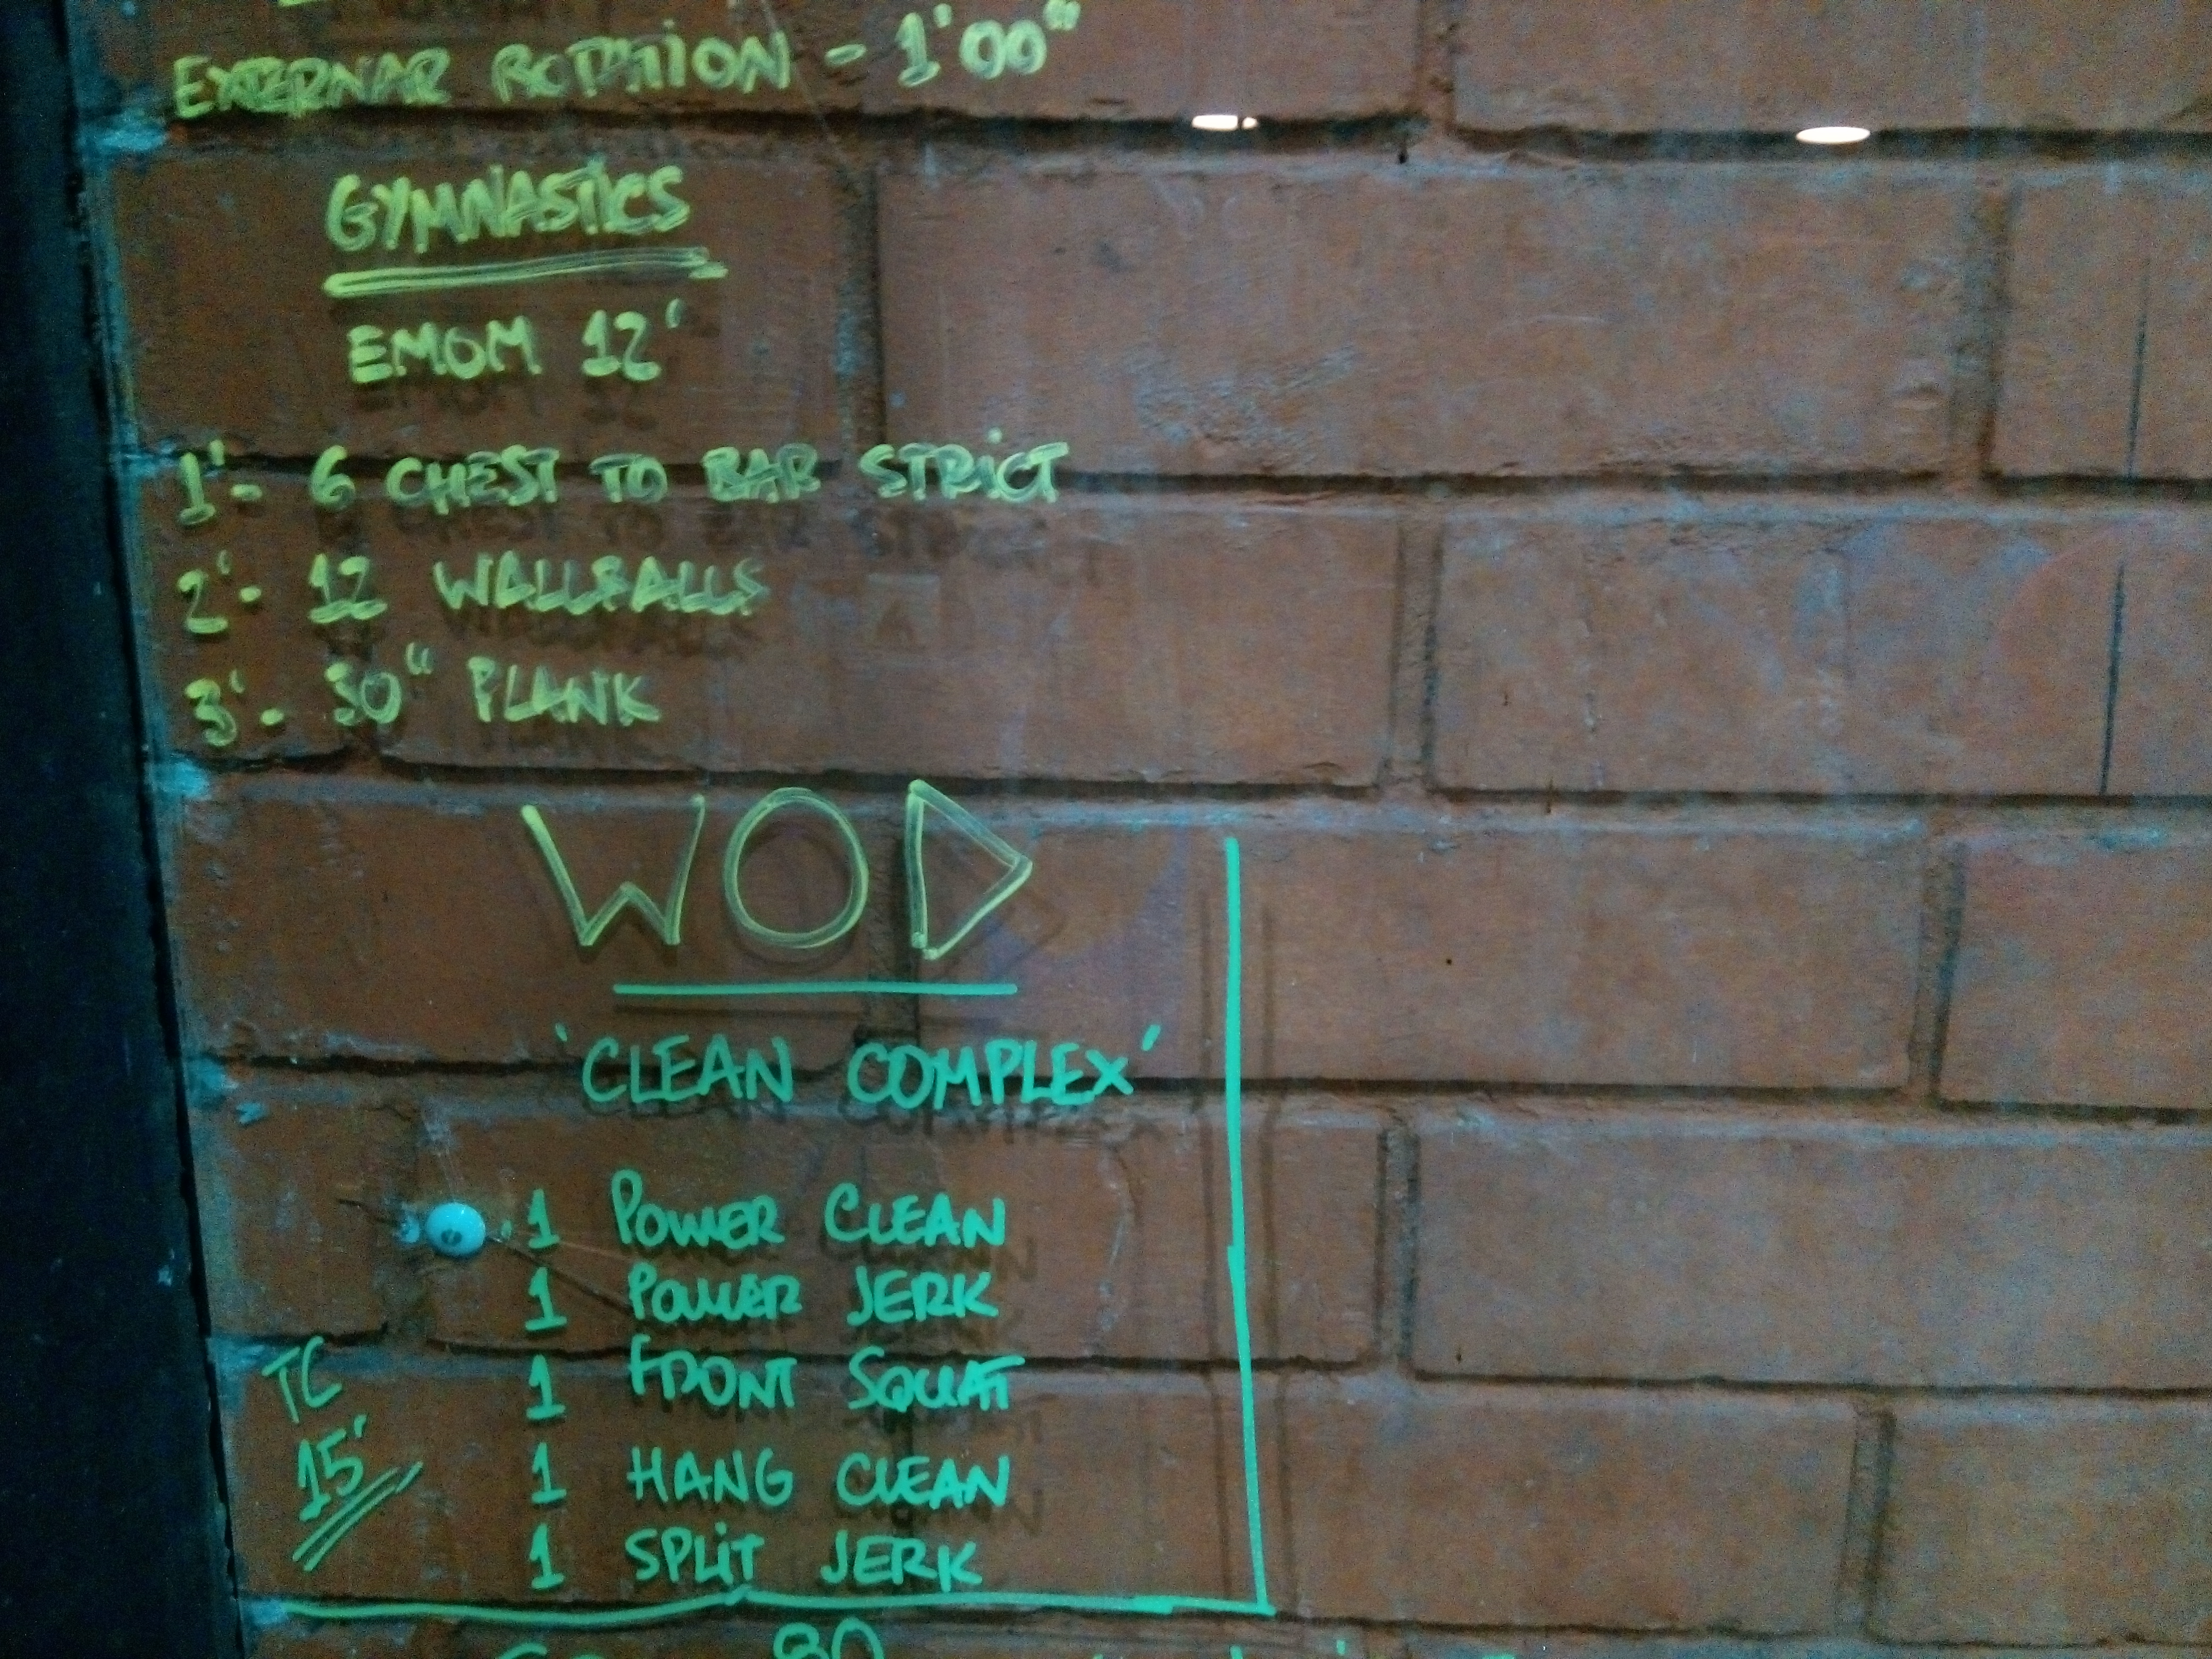 EXTERNAR ROTATION - 1'00"
GYMNASTICS
EMOM 12'
1'- 6 CHEST TO BAR STRICT
2'- 12 WALLBALLS
3'- 30" PLANK
WOD
'CLEAN COMPLEX'
1 POWER CLEAN
1 POWER JERK
1 FRONT SQUAT
1 HANG CLEAN
1 SPLIT JERK
TC
15'